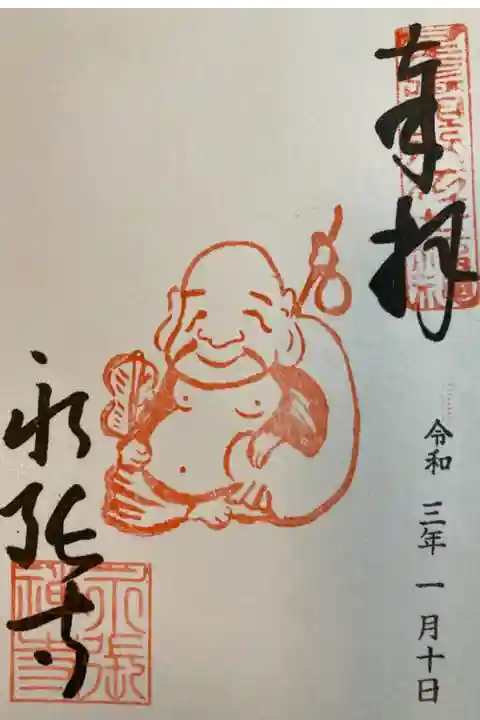 奉拝
令和 三年 一月十日
永張寺
永張禅寺